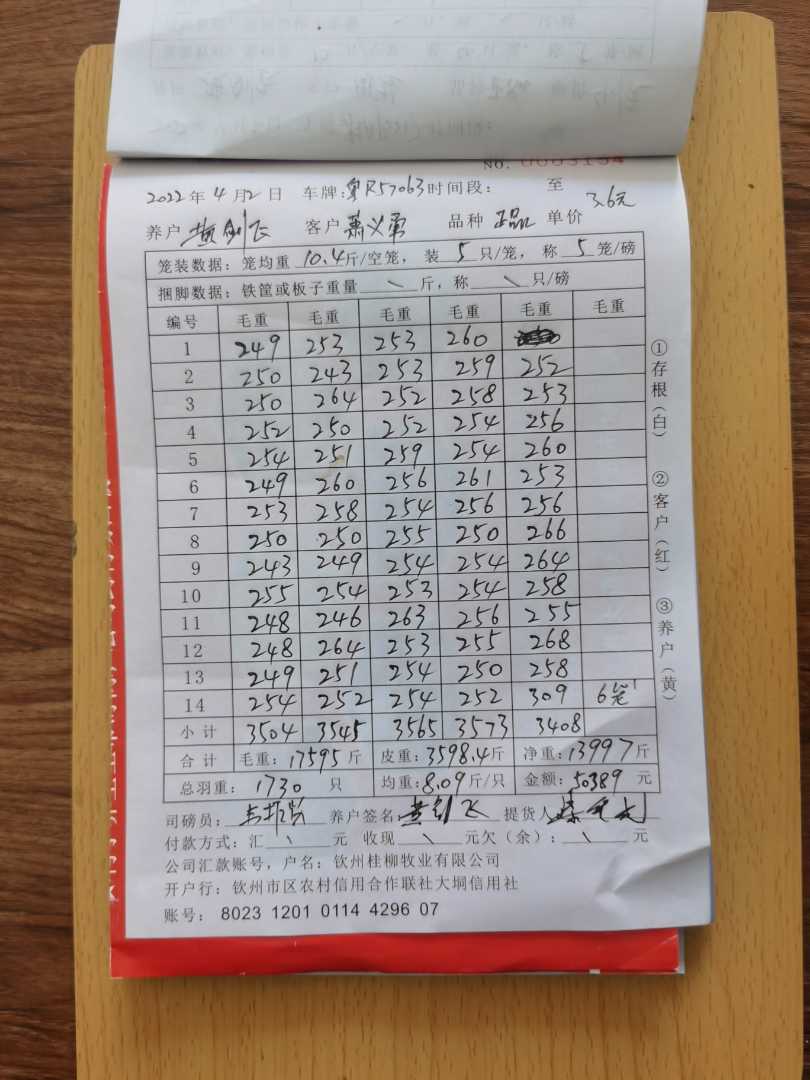 NO. 0003154
2022年4月2日 车牌:粤R57063时间段: 至
养户 黄剑飞 客户 萧义勇 品种 正品 单价 3.6元
笼装数据: 笼均重 10.4斤/空笼, 装 5 只/笼, 称 5 笼/磅
捆脚数据: 铁筐或板子重量 \ 斤, 称 \ 只/磅
编号 毛重 毛重 毛重 毛重 毛重 毛重
1 249 253 253 260
2 250 243 253 259 252
3 250 264 252 258 253
4 252 250 252 254 256
5 254 251 259 254 260
6 249 260 256 261 253
7 253 258 254 256 256
8 250 250 255 250 266
9 243 249 254 254 264
10 255 254 253 254 258
11 248 246 263 256 255
12 248 264 253 255 268
13 249 251 254 250 258
14 254 252 254 252 309 6笼
小计 3504 3545 3565 3573 3408
合计 毛重: 17595 斤 皮重: 3598.4斤 净重: 13997斤
总羽重: 1730 只 均重: 8.09斤/只 金额: 50389 元
司磅员: 养户签名 黄剑飞 提货人
付款方式: 汇 \ 元 收现 \ 元欠(余): \ 元
公司汇款账号, 户名: 钦州桂柳牧业有限公司
开户行: 钦州市区农村信用合作联社大垌信用社
账号: 8023 1201 0114 4296 07
①存根(白) ②客户(红) ③养户(黄)